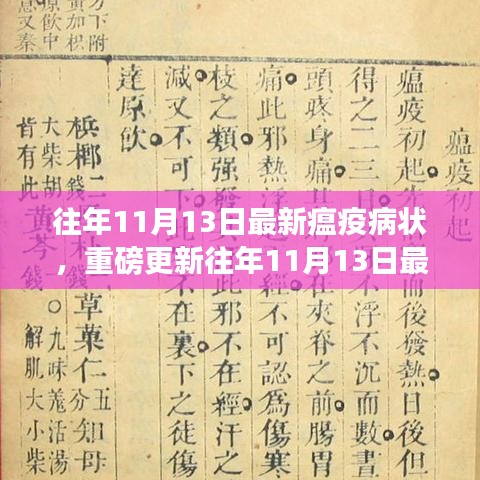 瘟疫初起
瘟疫初起先
後發熱日後但
得之二三日
不沉而數晝
頭疼身痛
夾脊之前腸胃
痛此邪熱浮
不可認為傷寒
枝之類強發
不在經汗之
減又不可下
不在裏下之徒傷
達原飲
檳榔二錢
草菓仁五 知母
大柴胡 黃芩
九味羗活湯
皆有此
解肌大小柴
方下附
黃加枳
原飲中
又秦
往年11月13日最新瘟疫病状
，重磅更新往年11月13日最